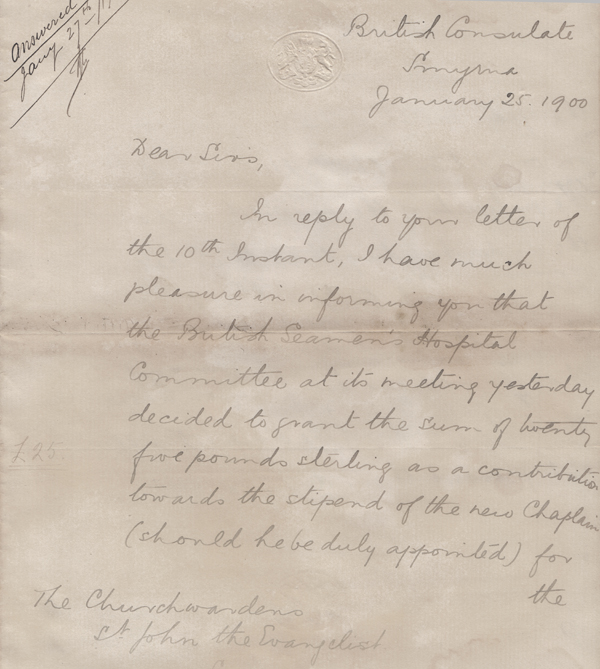 answered
Jany 27th
British Consulate
Smyrna
January 25. 1900
Dear Sirs,
In reply to your letter of
the 10th Instant, I have much
pleasure in informing you that
the British Seamen's Hospital
Committee at its meeting yesterday
decided to grant the sum of twenty
£25.
five pounds sterling as a contribution
towards the stipend of the new Chaplain
(should he be duly appointed) for
the
The Churchwardens
St John the Evangelist